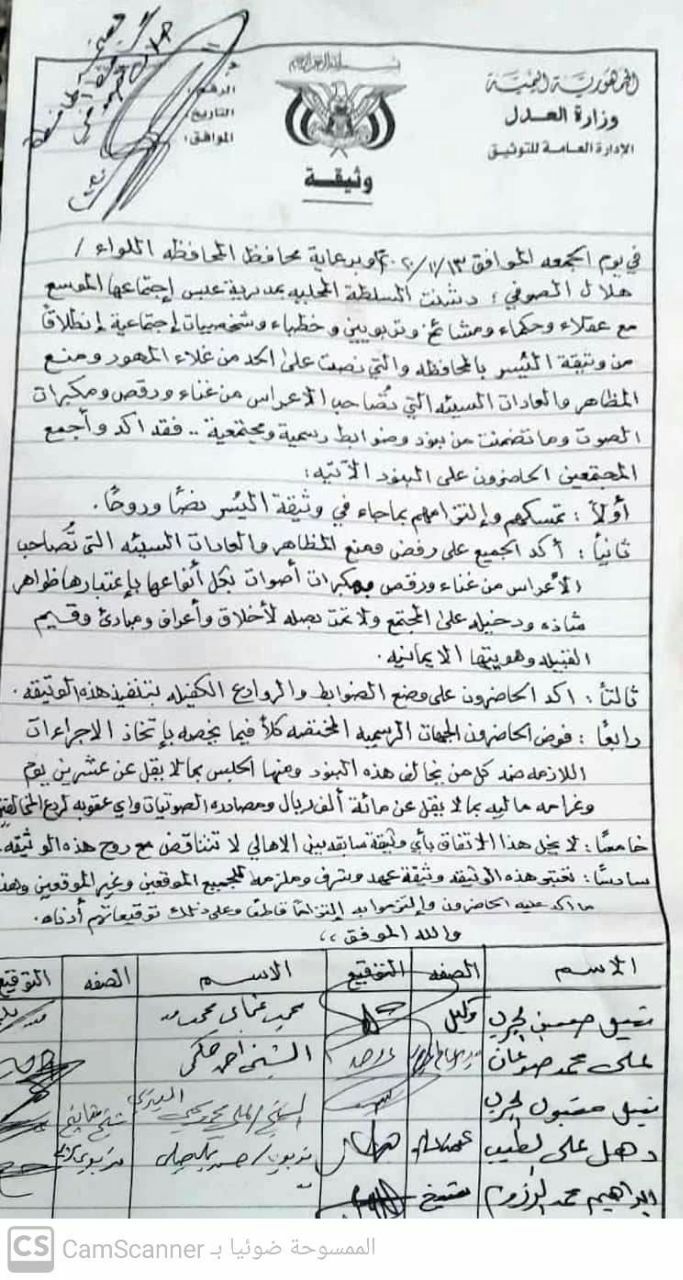 بسم الله الرحمن الرحيم
الجمهورية اليمنية
وزارة العدل
الإدارة العامة للتوثيق
الرقم:
التاريخ:
الموافق:
وثيقة
في يوم الجمعه الموافق ١٣/١١/٢٠٢٠م وبرعاية محافظ المحافظه اللواء /
هلال الصوفي ؛ دشنت السلطة المحليه بمديرية عبس إجتماعها الموسع
مع عقلاء وحكماء ومشائخ وتربويين وخطباء وشخصيات إجتماعية إنطلاقاً
من وثيقة اليُسر بالمحافظه والتي نصت على الحد من غلاء المهور ومنع
المظاهر والعادات السيئه التي تُصاحب الأعراس من غناء ورقص ومكبرات
الصوت وما تضمنت من بنود وضوابط رسمية ومجتمعية .. فقد اكد وأجمع
المجتمعين الحاضرون على البنود الآتيه:
أولاً: تمسكهم وإلتزامهم بماجاء في وثيقة اليُسر نصًا وروحًا.
ثانياً: أكد الجميع على رفض ومنع المظاهر والعادات السيئه التي تُصاحب
الأعراس من غناء ورقص ومكبرات أصوات بكل أنواعها بإعتبارها ظواهر
شاذه ودخيله على المجتمع ولا تمت بصله لأخلاق وأعراف ومبادئ وقيم
القبيله وهويتها الايمانيه.
ثالثاً: اكد الحاضرون على وضع الضوابط والروادع الكفيله بتنفيذ هذه الوثيقه.
رابعًا: فوض الحاضرون الجهات الرسميه المختصه كلاً فيما يخصه بإتخاذ الاجراءات
اللازمه ضد كل من يخالف هذه البنود ومنها الحبس بما لا يقل عن عشرين يوم
وغرامه ماليه بما لا يقل عن مائة ألف ريال ومصادره الصوتيات واي عقوبه لردع المخالفين
خامسًا: لا يخل هذا الاتفاق بأي وثيقة سابقه بين الاهالي لا تتناقض مع روح هذه الوثيقه.
سادسًا: تعتبر هذه الوثيقه وثيقة عهد وشرف وملزمة للجميع الموقعين وغير الموقعين وهذا
ما اكد عليه الحاضرون وإلتزموا به إلتزامًا قاطعًا وعلى ذلك توقيعاتهم أدناه.
والله الموفق ،،
الاسم الصفه التوقيع الاسم الصفه التوقيع
وكيل
علي محمد الشيخ احمد
نبيل مقبول
علي الطيب
ابراهيم محمد شيخ
CS CamScanner الممسوحة ضوئيا بـ